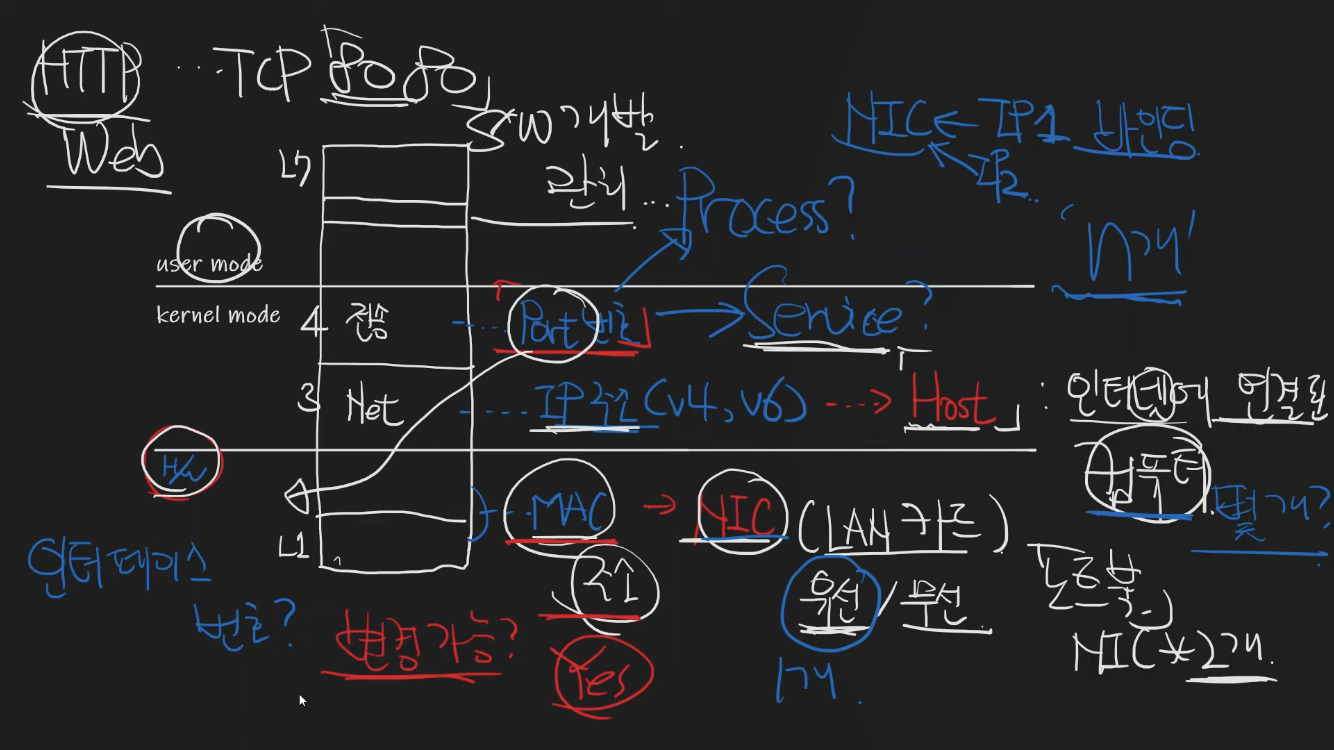 HTTP ... TCP 「80 80」
Web
S/W 개발.
관리...
NIC ← IP1 바인딩
IP2..
'n개'
L7
Process?
user mode
kernel mode
4 전송
「Port 번호」 → Service?
3 Net
IP주소 (v4, v6) ---> 「Host」 : 인터넷에 연결된
컴퓨터
몇개?
H/w
MAC → NIC (LAN카드)
주소
유선 / 무선
1개.
L1
인터페이스
번호?
변경가능?
Yes
노트북
NIC * 2개.